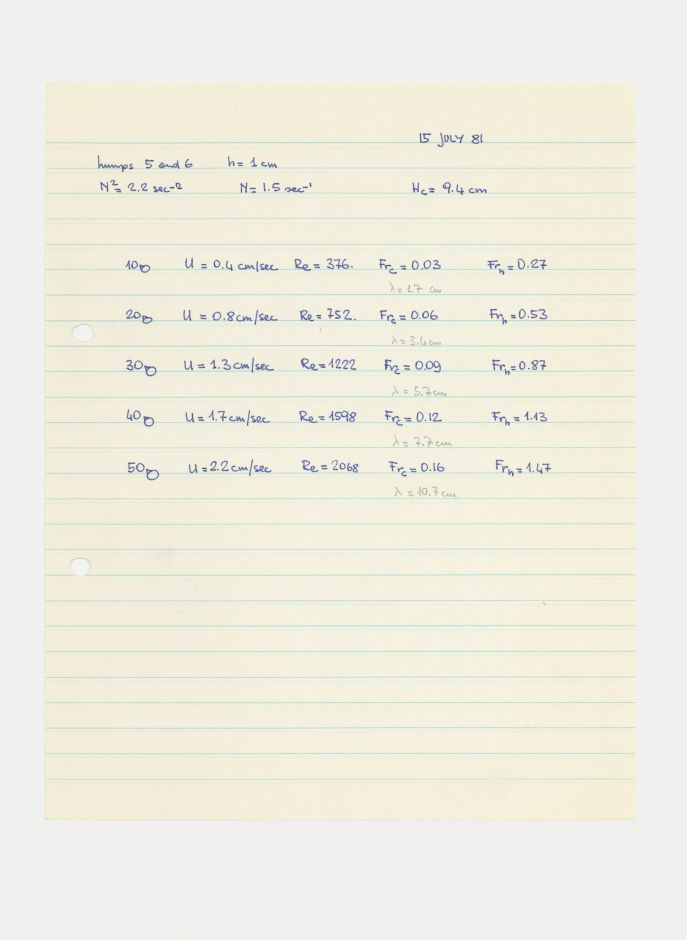 15 JULY 81
humps 5 and 6 h = 1 cm
N² = 2.2 sec⁻² N = 1.5 sec⁻¹ Hc = 9.4 cm
10 U = 0.4 cm/sec Re = 376. Frc = 0.03 Frh = 0.27
λ = 1.7 cm
20 U = 0.8 cm/sec Re = 752. Frc = 0.06 Frh = 0.53
λ = 3.4 cm
30 U = 1.3 cm/sec Re = 1222 Frc = 0.09 Frh = 0.87
λ = 5.7 cm
40 U = 1.7 cm/sec Re = 1598 Frc = 0.12 Frh = 1.13
λ = 7.7 cm
50 U = 2.2 cm/sec Re = 2068 Frc = 0.16 Frh = 1.47
λ = 10.7 cm